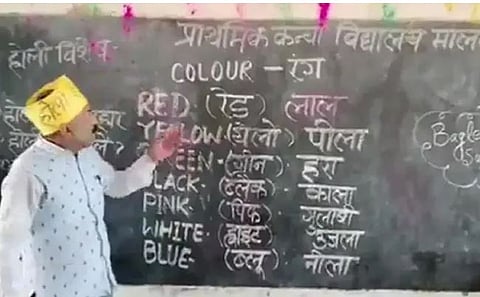 होली विशेष-
प्राथमिक कन्या विद्यालय माल
COLOUR - रंग
RED (रेड) लाल
YELLOW (येलो) पीला
EEN (ग्रीन) हरा
LACK- (ब्लैक) काला
PINK- (पिंक) गुलाबी
WHITE- (ह्वाइट) उजला
BLUE- (ब्लू) नीला
होली